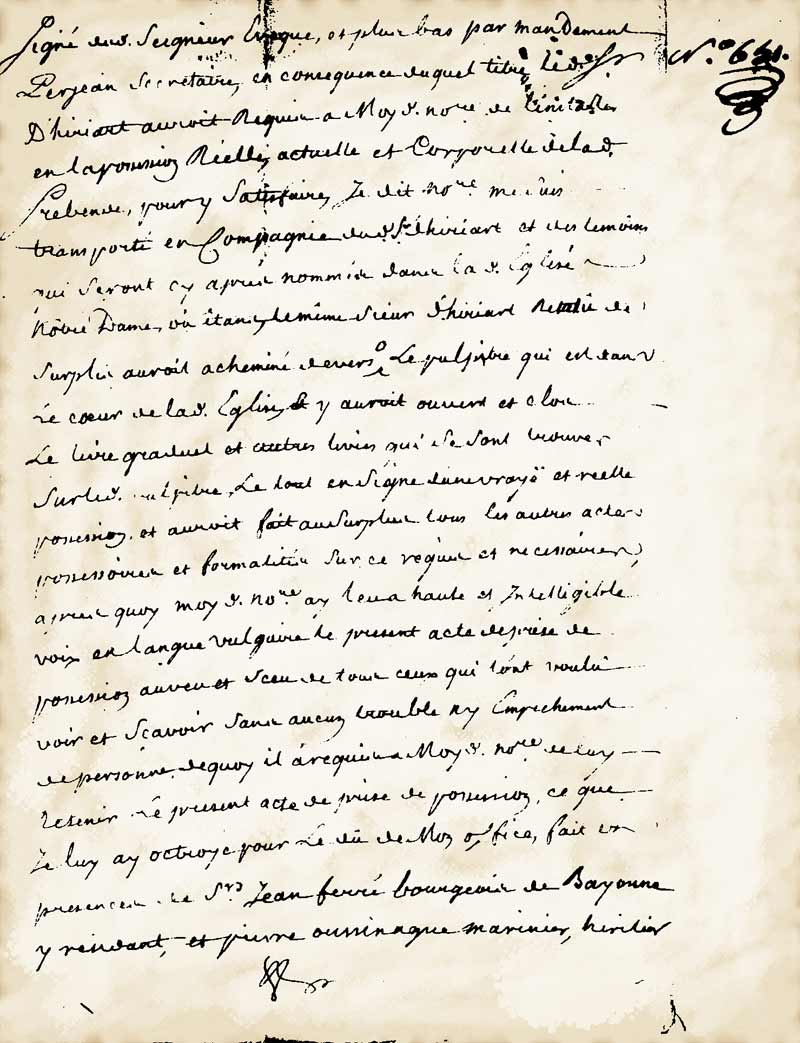 Signé dud. Seigneur Eveque, et plus bas par mandement
Perjean Secretaire, en consequence duquel titre, led. Sr N.o 651.
D'hiriart auroit Requis a Moy d. nore de
en la possession Réelle, actuelle et Corporelle de lad.
Prebende, pour y Satisfaire, Je dit nore me suis
transporté en Compagnie dud. Sr. d'hiriart et des temoins
qui seront cy aprés nommés dans la d. Eglise
Nôtre Dame, où étans, le même sieur d'hiriart Retû de
Surplis auroit acheminé devers Le pulpitre qui est dans
Le cœur de lad. Eglise, et y auroit ouvert et clos
Le livre graduel et autres livres qui se sont trouves
Surled. pulpitre, Le tout en Signe d'une vraÿe et reelle
possession, et auroit fait au Surplus tous les autres actes
possessoires et formalités sur ce requis et necessaires,
apres quoy moy d. nore ay leu a haute et Intelligible
voix en langue vulgaire le present acte de prise de
possession au veu et sceu de tous ceux qui l'ont voulû
voir et scavoir sans aucun trouble ny Empechement
de personne, dequoy il a requis a Moy d. nore de luy
retenir Le present acte de prise de possession, ce que
Je luy ay octroyé pour Le dû de Mon office, fait en
presences de Srs Jean ferré bourgeois de Bayonne
y residant, et pierre oussinague marinier, heritier